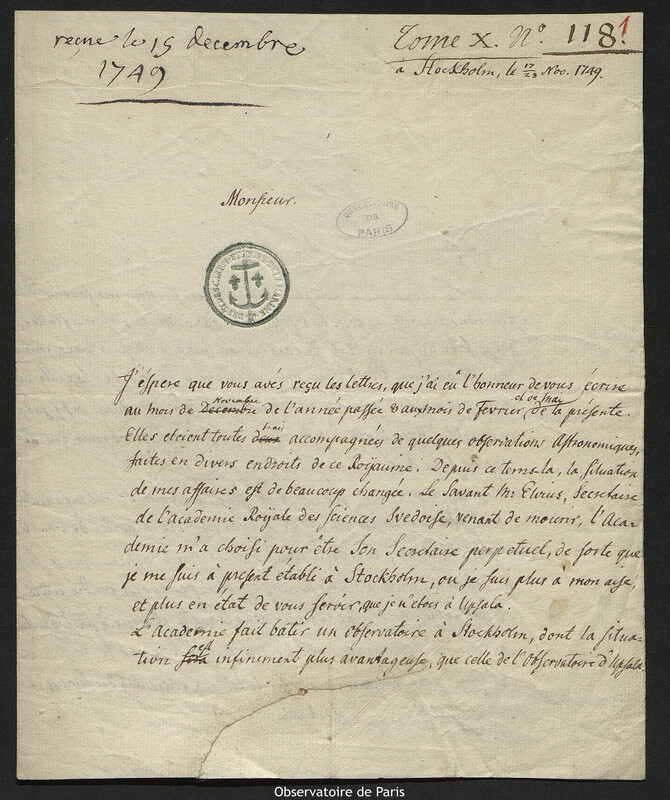 reçue le 15 decembre
1749
Tome X. N.º 118.1
à Stockholm, le 17/28 Nov. 1749.
Monsieur.
OBSERVATOIRE
DE
PARIS
J'éspere que vous avés reçu les lettres, que j'ai eû l'honneur de vous écrire
Novembre et de mai
au mois de Decembre de l'année passée & aux mois de Fevrier de la présente.
trois
Elles etoient toutes deux accompagnées de quelques observations Astronomiques,
faites en divers endroits de ce Roÿaume. Depuis ce tems-la, la situation
de mes affaires est de beaucoup changée. Le Savant Mr. Elvius, Secretaire
de l'academie Roÿale des Sciences Svedoise, venant de mourir, l'Aca-
demie m'a choisi pour être son Secretaire perpetuel, de sorte que
je me suis à présent établi à Stockholm, ou je suis plus à mon aise,
et plus en état de vous servir, que je n'étois à Upsala.
L'Academie fait batir un observatoire à Stockholm, dont la situa-
est
tion sera infiniment plus avantageuse, que celle de l'Observatoire d'Upsala
Observatoire de Paris